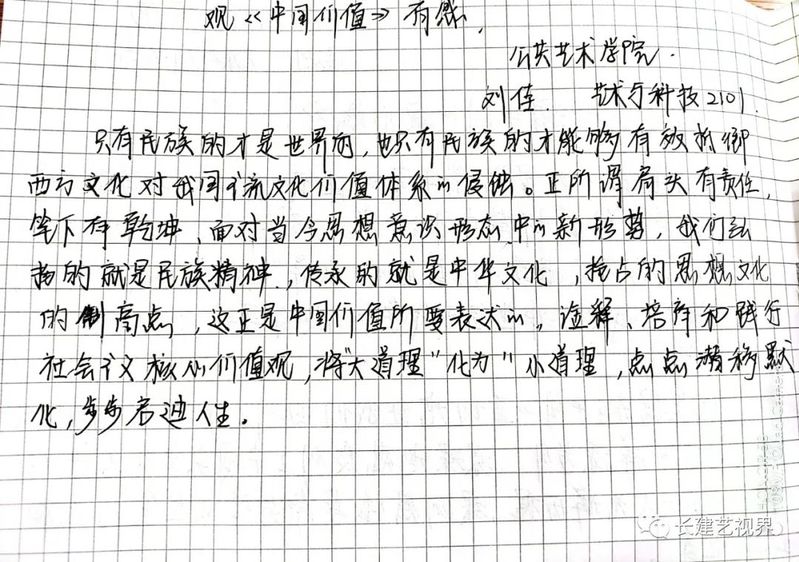 观《中国价值》有感
公共艺术学院.
刘佳. 艺术与科技2101.
只有民族的才是世界的,也只有民族的才能够有效抵御
西方文化对我国主流文化价值体系的侵蚀。正所谓肩头有责任,
笔下有乾坤,面对当今思想意识形态中的新形势,我们弘
扬的就是民族精神,传承的就是中华文化,抢占的思想文化
的制高点,这正是中国价值所要表达的。诠释、培育和践行
社会主义核心价值观,将"大道理"化为"小道理,点点潜移默
化,步步启迪人生。
长建艺视界